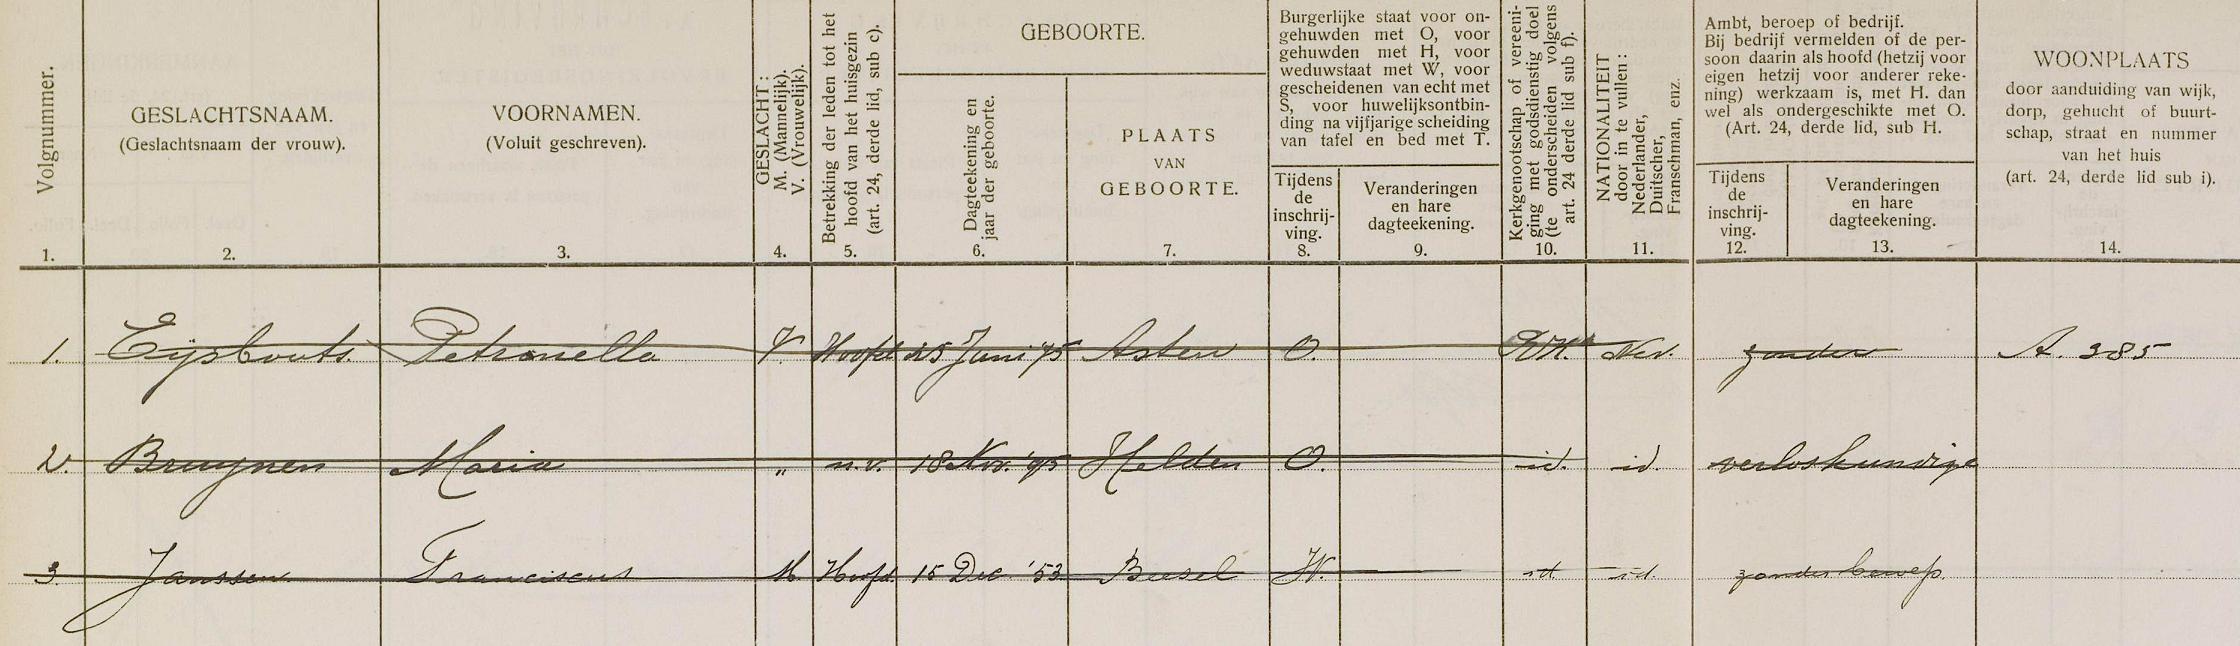 Volgnummer.
1.
GESLACHTSNAAM.
(Geslachtsnaam der vrouw).
2.
VOORNAMEN.
(Voluit geschreven).
3.
GESLACHT:
M. (Mannelijk).
V. (Vrouwelijk).
4.
Betrekking der leden tot het
hoofd van het huisgezin
(art. 24, derde lid, sub c).
5.
GEBOORTE.
Dagteekening en
jaar der geboorte.
6.
PLAATS
VAN
GEBOORTE.
7.
Burgerlijke staat voor on-
gehuwden met O, voor
gehuwden met H, voor
weduwstaat met W, voor
gescheidenen van echt met
S, voor huwelijksontbin-
ding na vijfjarige scheiding
van tafel en bed met T.
Tijdens
de
inschrij-
ving.
8.
Veranderingen
en hare
dagteekening.
9.
Kerkgenootschap of vereeni-
ging met godsdienstig doel
(te onderscheiden volgens
art. 24 derde lid sub f).
10.
NATIONALITEIT
door in te vullen:
Nederlander,
Duitscher,
Franschman, enz.
11.
Ambt, beroep of bedrijf.
Bij bedrijf vermelden of de per-
soon daarin als hoofd (hetzij voor
eigen hetzij voor anderer reke-
ning) werkzaam is, met H. dan
wel als ondergeschikte met O.
(Art. 24, derde lid, sub H.
Tijdens
de
inschrij-
ving.
12.
Veranderingen
en hare
dagteekening.
13.
WOONPLAATS
door aanduiding van wijk,
dorp, gehucht of buurt-
schap, straat en nummer
van het huis
(art. 24, derde lid sub i).
14.
1. Eijsbouts Petronella V. Hoofd 25 Juni 75 Asten O. R.K. Ned. zonder A. 385
2. Bruynen Maria " n.v. 18 Nov. '95 Helden O. id. id. verloskundige
3. Janssen Franciscus M. Hoofd 15 Dec '53 Beesel W. id. id. zonder beroep.